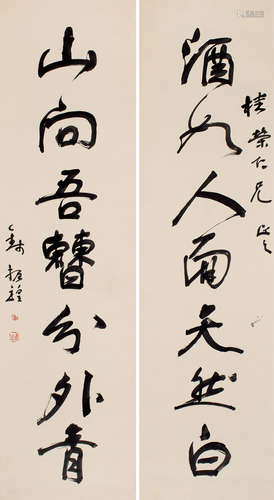 酒如人面天然白
桂榮仁兄正之
山向吾曹分外青
錢振鍠